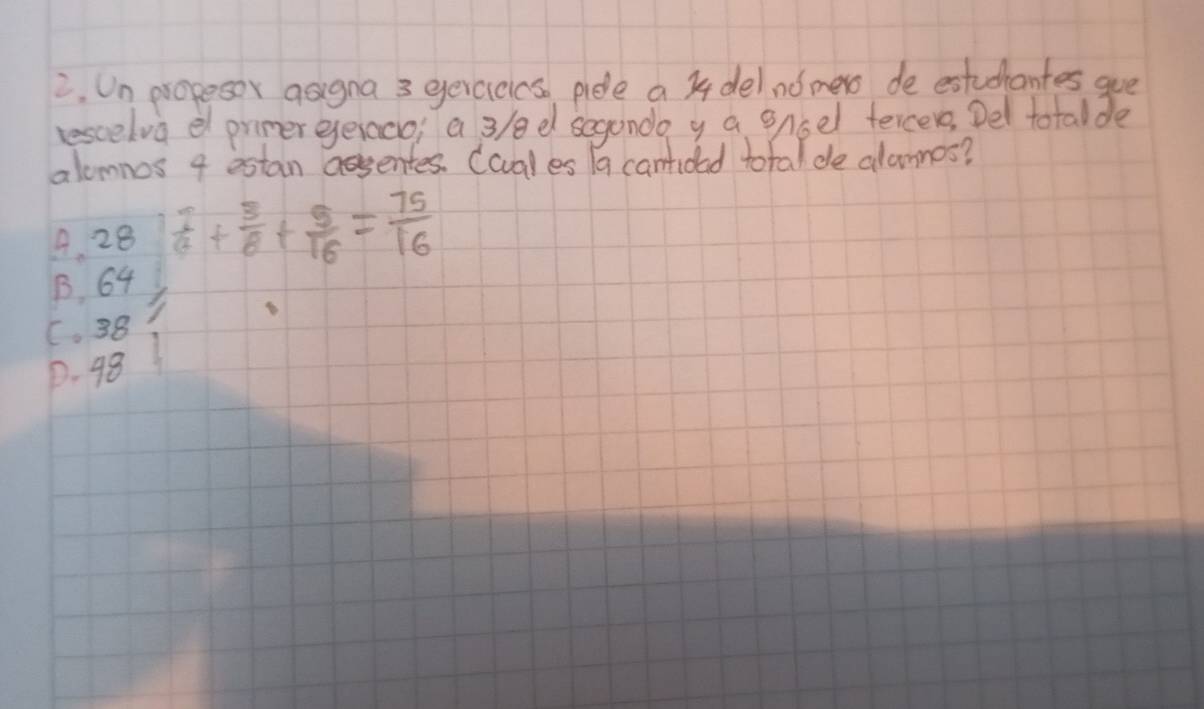 2. Un propesor asigna 3 ejercicics, pide a 1/4 del número de estudiantes que
resuelva el primer ejercicio; a 3/8 el segundo y a 5/16 el tercero. Del total de
alumnos 4 estan ausentes. Cual es la cantidad total de alumnos?
A. 28 + 3/8 + 5/16 = 15/16
B. 64
C. 38
D. 98